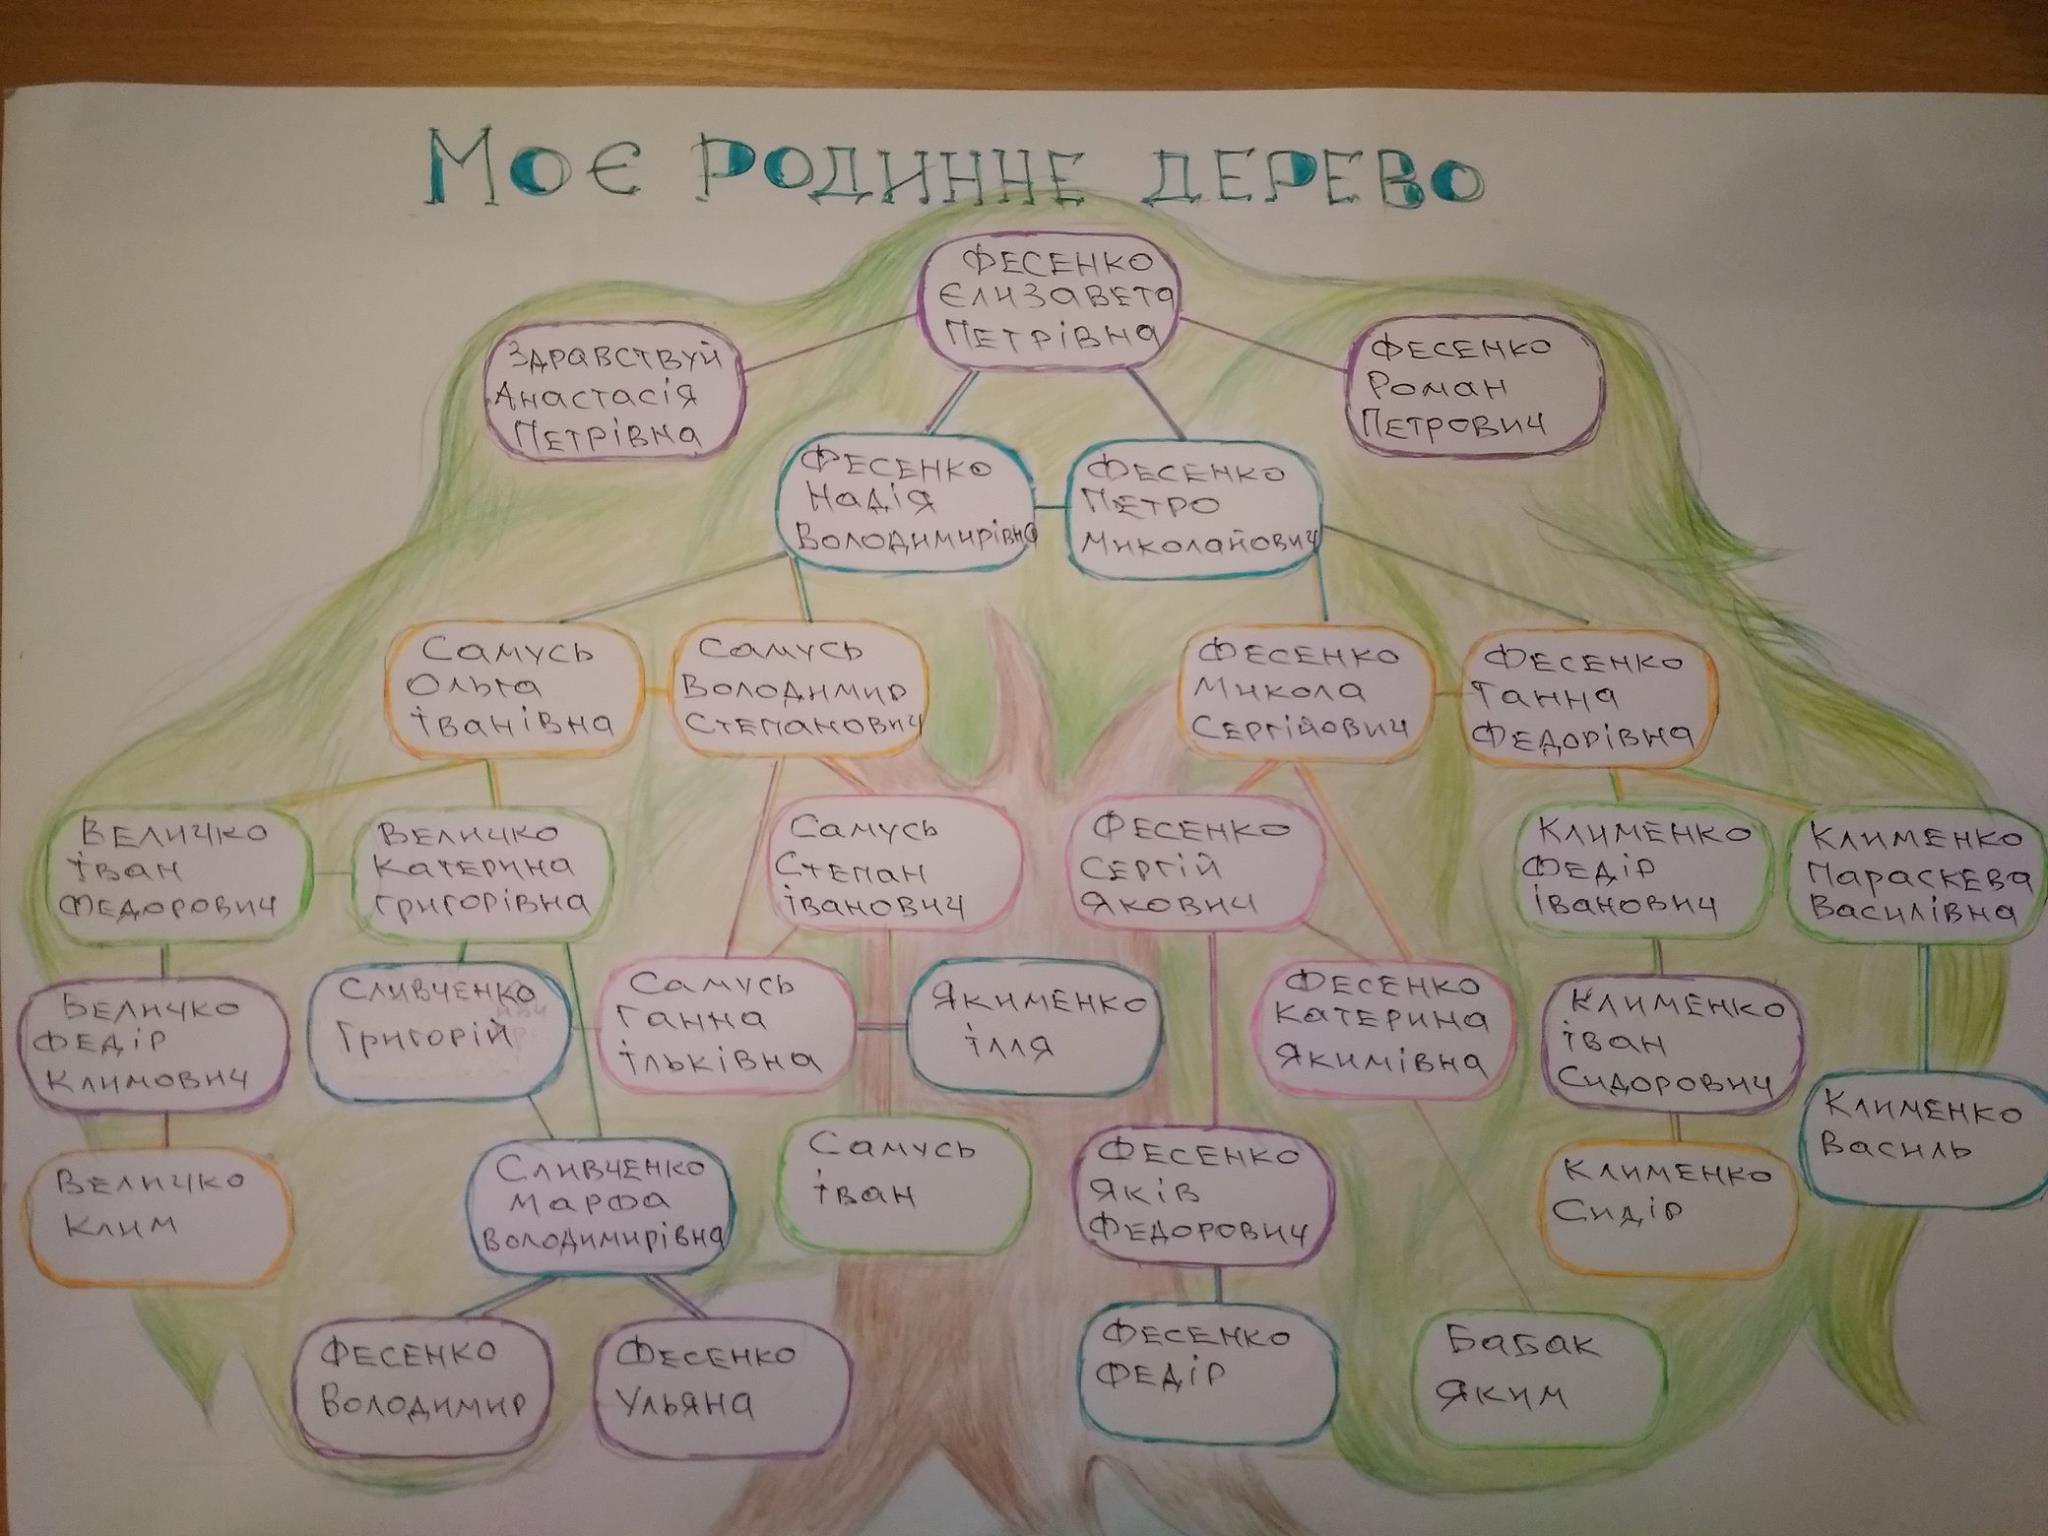 Моє родинне дерево
Фесенко
Єлизавета
Петрівна
Здравствуй
Анастасія
Петрівна
Фесенко
Роман
Петрович
Фесенко
Надія
Володимирівна
Фесенко
Петро
Миколайович
Самусь
Ольга
Іванівна
Самусь
Володимир
Степанович
Фесенко
Микола
Сергійович
Фесенко
Ганна
Федорівна
Величко
Іван
Федорович
Величко
Катерина
Григорівна
Самусь
Степан
Іванович
Фесенко
Сергій
Якович
Клименко
Федір
Іванович
Клименко
Параскева
Василівна
Величко
Федір
Климович
Сливченко
Григорій
Самусь
Ганна
Ільківна
Якименко
Ілля
Фесенко
Катерина
Якимівна
Клименко
Іван
Сидорович
Клименко
Василь
Величко
Клим
Сливченко
Марфа
Володимирівна
Самусь
Іван
Фесенко
Яків
Федорович
Клименко
Сидір
Фесенко
Володимир
Фесенко
Ульяна
Фесенко
Федір
Бабак
Яким